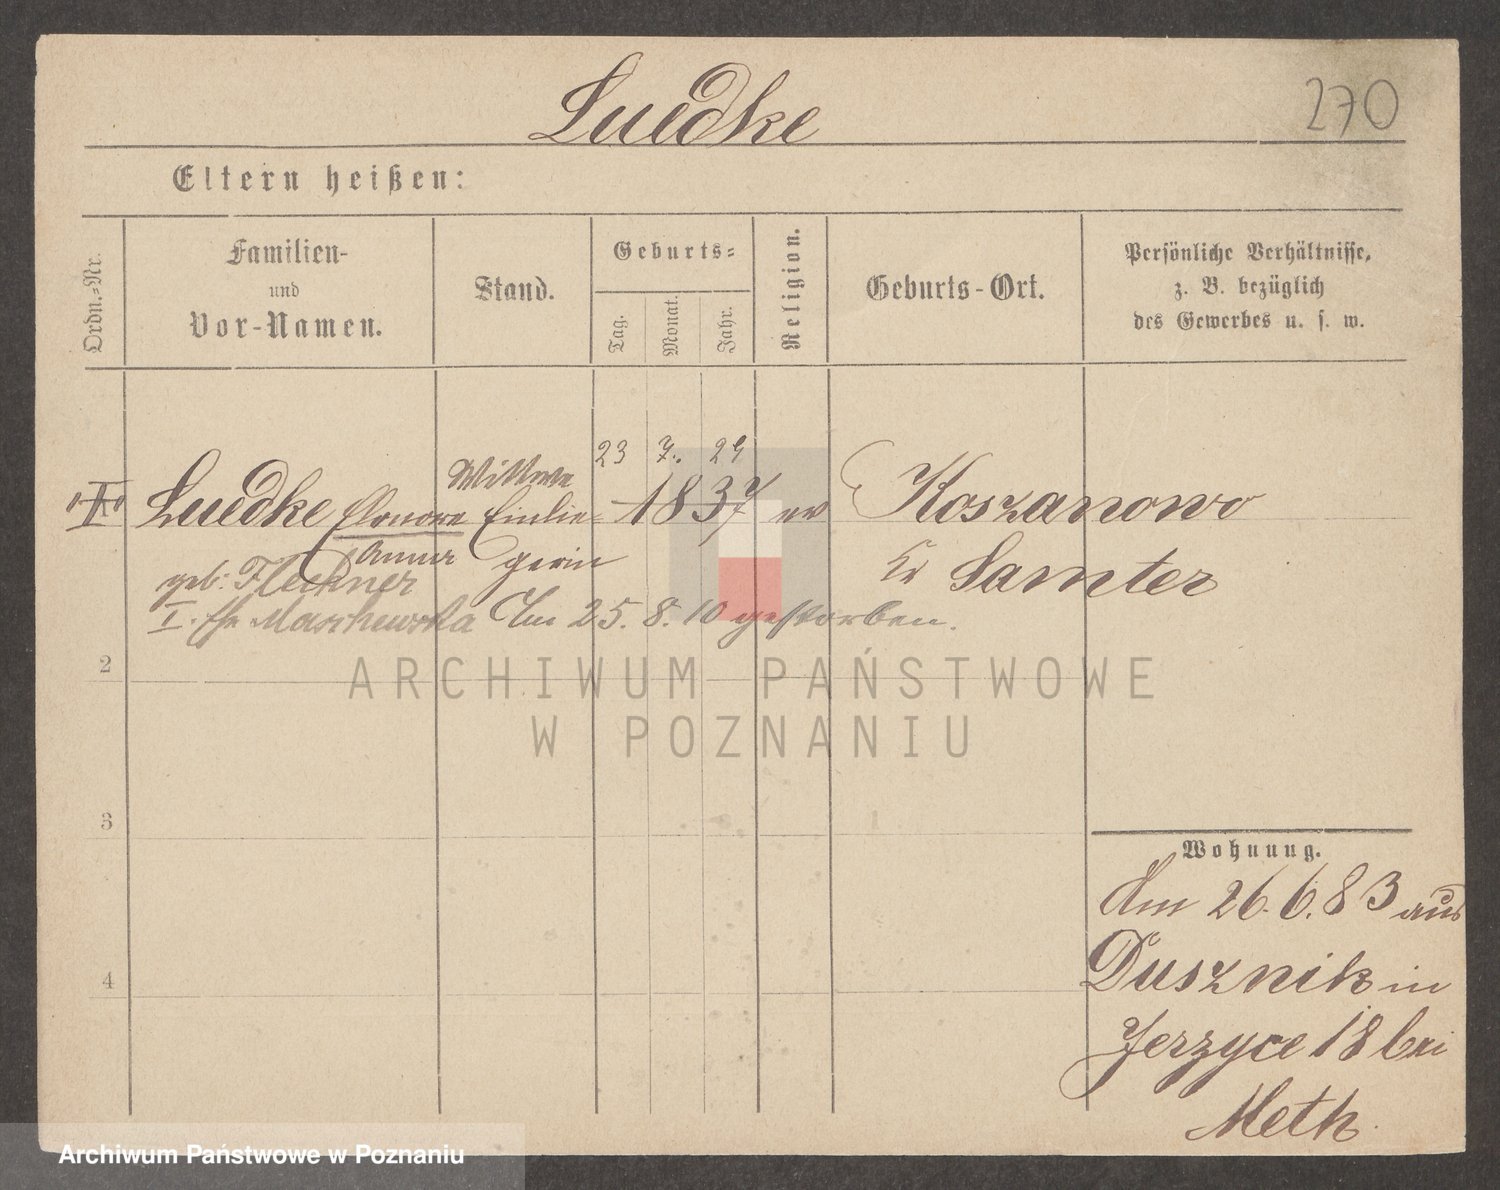 Luedke
270
Eltern heißen:
Ordn.-Nr.
Familien-
und
Vor-Namen.
Stand.
Geburts-
Tag.
Monat.
Jahr.
Religion.
Geburts-Ort.
Persönliche Verhältnisse,
z. B. bezüglich
des Gewerbes u. s. w.
23 7. 29
Wittwe
Luedke Eleonore Einlie- 1837 ev Koszanowo
Anna gerin Kr Samter
geb. Fleckner
I. Ehe Am 25. 8. 10 gestorben.
2
3
4
Wohnung.
Am 26. 6. 83 aus
Dusznik in
Jerzyce 18 bei
Meth.
ARCHIWUM PAŃSTWOWE
W POZNANIU
Archiwum Państwowe w Poznaniu